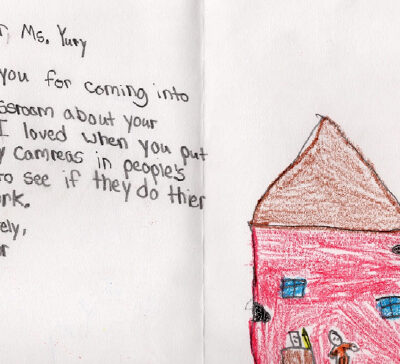 r, Ms. Yury
you for coming into
ssroom about your
I loved when you put
y camreas in people's
to see if they do thier
rk.
ely,
or